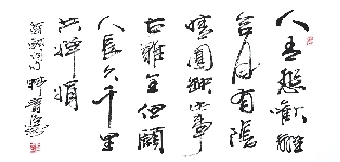 人有悲歡離
合月有陰
晴圓缺此事
古難全但願
人長久千里
共嬋娟